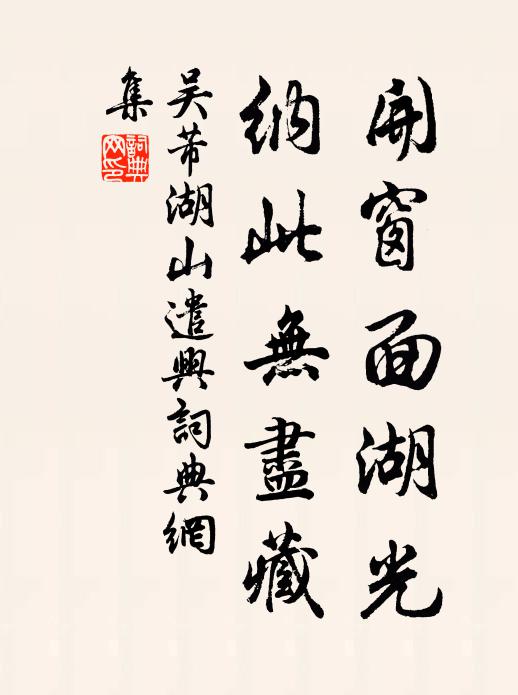 開窗面湖光
納此無盡藏
吳芾湖山遣興詞典網
集
詞典
网印